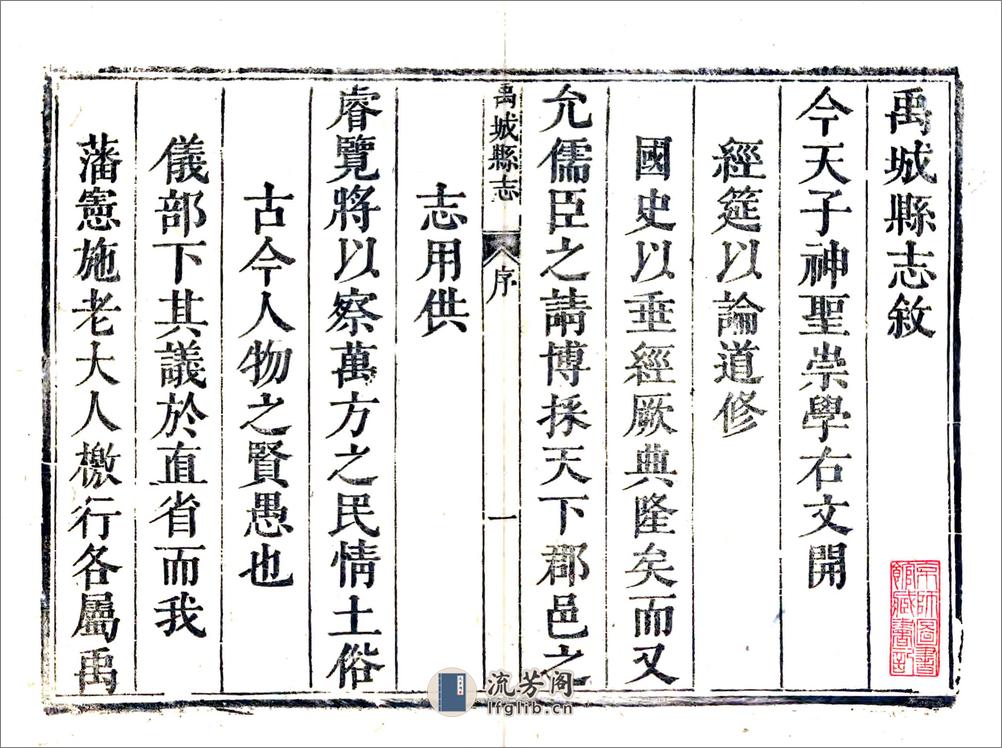 禹城縣志敘
今天子神聖崇學右文開
經筵以論道修
國史以垂經厥典隆矣而又
允儒臣之請博採天下郡邑之
禹城縣志 序 一
志用供
睿覽將以察萬方之民情土俗
古今人物之賢愚也
儀部下其議於直省而我
藩憲施老大人檄行各屬禹
京師圖書
館藏書記
流芳阁
lfglib.cn